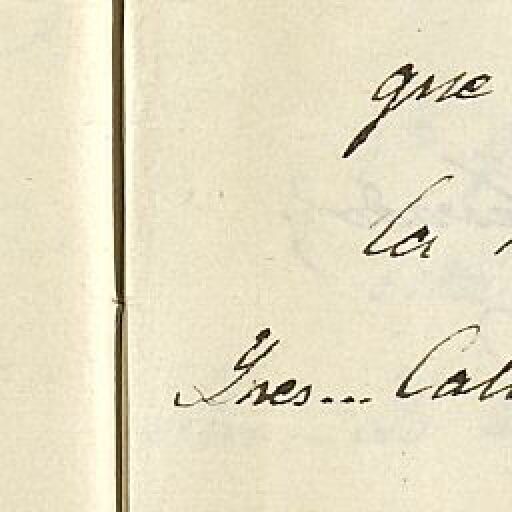 que
la
Yves... Cal